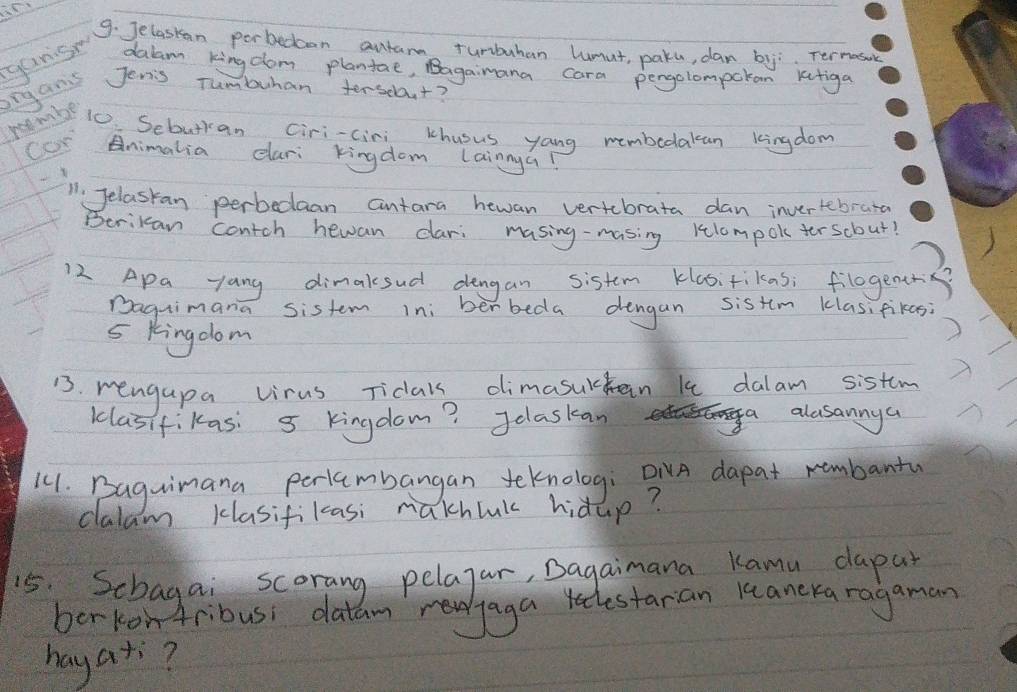 ganism
9. Jelaskan perbedaan antara Tumbuhan lumut, paku, dan biji. Termasuk
dalam kingdom plantae, Bagaimana cara pengelompokan ketiga
organs Jenis Tumbuhan tersebut?
membe 10. Sebutkan Ciri-Ciri khusus yang membedakan kingdom
cor Animalia dari kingdom lainnya!
11. Jelaskan perbedaan antara hewan vertebrata dan invertebrata
Berikan contoh hewan dari masing-masing kelompok tersebut!
12 Apa yang dimaksud dengan Sistem klasifikasi filogenetik?
Bagaimana Sistem ini berbeda dengan Sistem klasifikasi
5 kingdom
13. mengapa virus Tidak dimasukkan ke dalam sistem
klasifikasi 5 kingdom? Jelaskan alasannya
14. Bagaimana perkembangan teknologi DNA dapat membantu
dalam klasifikasi makhluk hidup?
15. Sebagai seorang pelajar, Bagaimana kamu dapat
berkontribusi dalam menjaga kelestarian keanekaragaman
hayati?